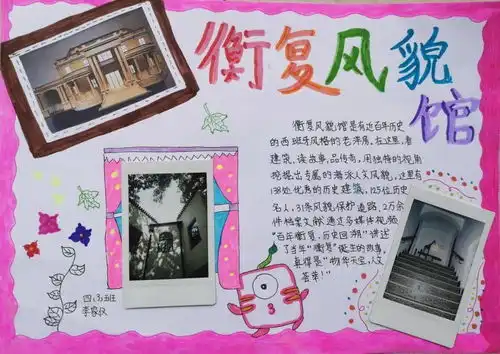 衡复风貌
馆
衡复风貌馆是有近百年历史
的西班牙风格的老洋房。在这里,看
建筑,读故事,品传奇,用独特的视角
挖掘出专属的海派人文风貌,这里有
处优秀的历史建筑,125位历史
名人,31条风貌保护道路,2万余
件档案文献通过多媒体视频
"百年衡复,历史回溯"讲述
了当年"衡复"诞生的故事,
真得是"物华天宝,人文
荟萃!"
四(3)班
李家仪